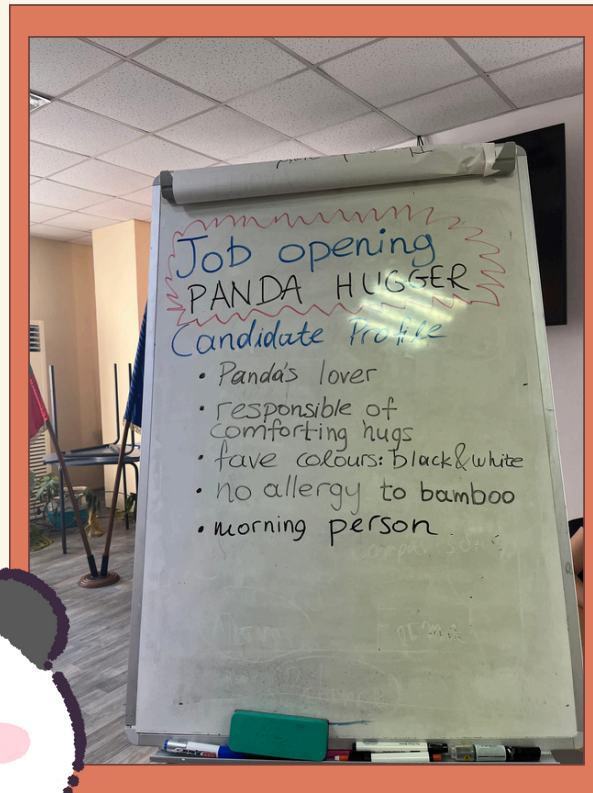 Job opening
PANDA HUGGER
Candidate Profile
• Panda's lover
• responsible of
comforting hugs
• fave colours: black&white
• no allergy to bamboo
• morning person